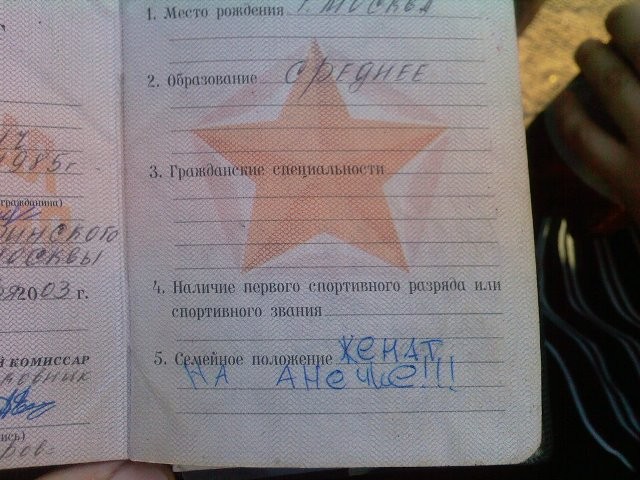 17
1985г.
гражданина)
инского
Москвы
2003 г.
КОМИССАР
1. Место рождения г. Москва
2. Образование среднее
3. Гражданские специальности
4. Наличие первого спортивного разряда или
спортивного звания
5. Семейное положение ЖЕНАТ
НА АНЕЧКЕ!!!